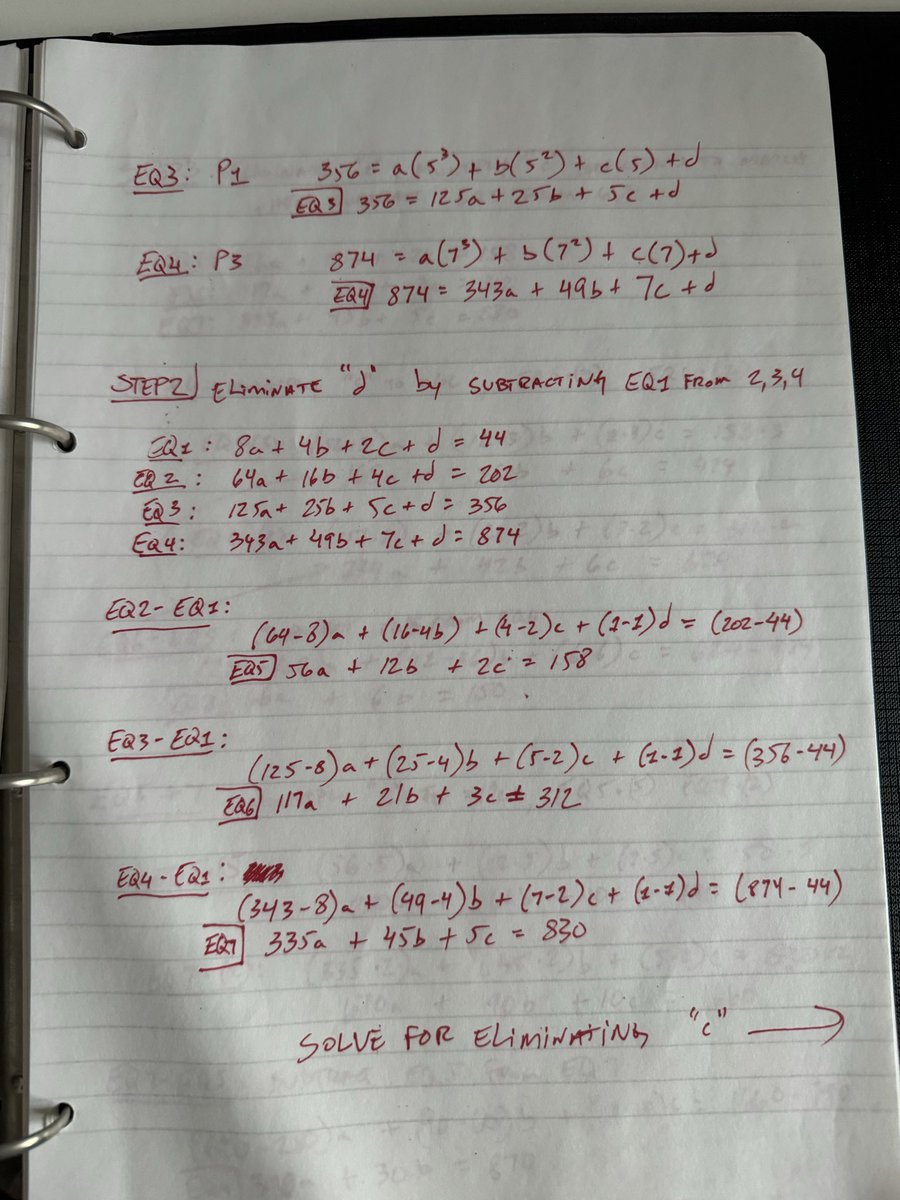 EQ3: P1 356 = a(5³) + b(5²) + c(5) + d
EQ3 356 = 125a + 25b + 5c + d
EQ4: P3 874 = a(7³) + b(7²) + c(7) + d
EQ4 874 = 343a + 49b + 7c + d
STEP2 ELIMINATE "d" by SUBTRACTING EQ1 FROM 2,3,4
EQ1: 8a + 4b + 2c + d = 44
EQ2: 64a + 16b + 4c + d = 202
EQ3: 125a + 25b + 5c + d = 356
EQ4: 343a + 49b + 7c + d = 874
EQ2 - EQ1:
(64-8)a + (16-4b) + (4-2)c + (1-1)d = (202-44)
EQ5 56a + 12b + 2c = 158
EQ3 - EQ1:
(125-8)a + (25-4)b + (5-2)c + (1-1)d = (356-44)
EQ6 117a + 21b + 3c = 312
EQ4 - EQ1:
(343-8)a + (49-4)b + (7-2)c + (1-1)d = (874-44)
EQ7 335a + 45b + 5c = 830
SOLVE FOR ELIMINATING "c" →